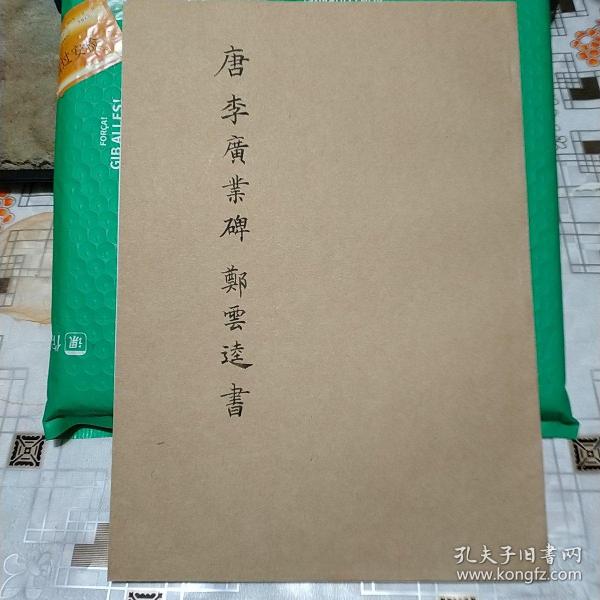 唐 李廣業碑 鄭雲逵書
FORÇA!
GIB ALLES!
过安检
课
孔夫子旧书网
www.kongfz.com